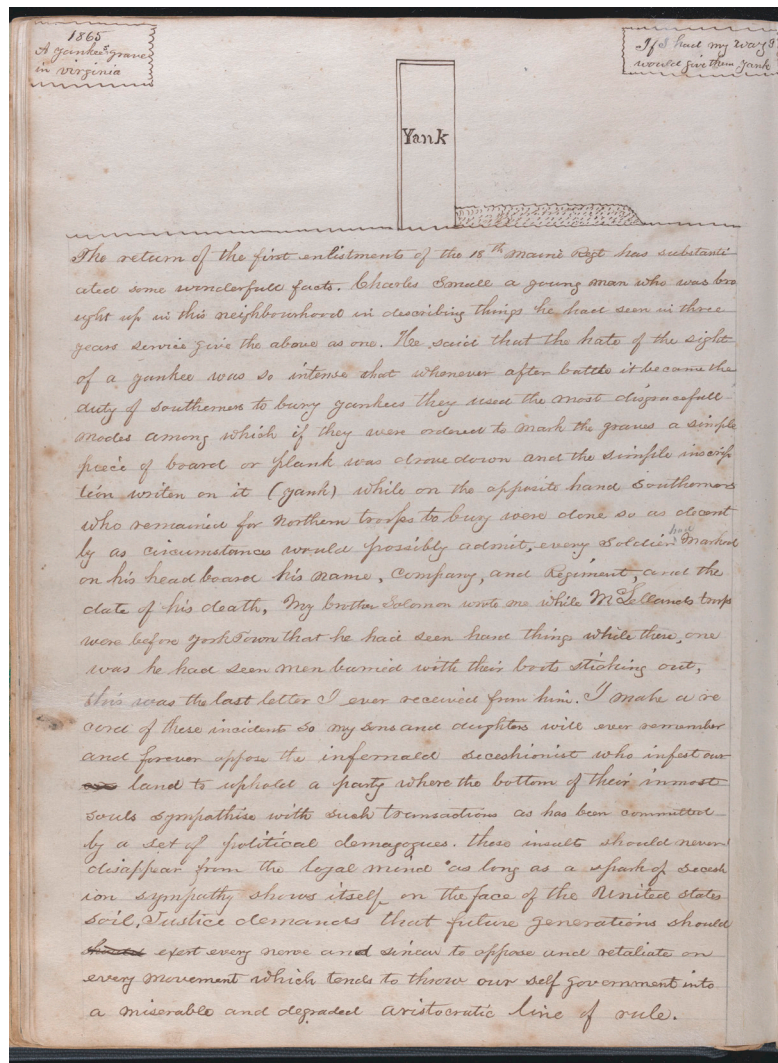 1865
A yankee's grave
in virginia
If I had my way I
would give them yank
Yank
The return of the first enlistments of the 18th maine Regt has substanti
ated some wonderfull facts. Charles Small a young man who was bro
ught up in this neighbourhood in describing things he had seen in three
years service give the above as one. He said that the hate of the sight
of a yankee was so intense that whenever after battle it became the
duty of southerners to bury yankees they used the most disgracefull
modes among which if they were ordered to mark the graves a simple
peice of board or plank was drove down and the simple inscrip
tion writen on it (yank) while on the opposite hand Southerners
who remained for Northern troops to bury were done so as decent
ly as circumstances would possibly admit, every soldier had marked
on his head board his name, Company, and Regiment, and the
date of his death, My brother Solomon wrote me while McLellands troops
were before York Town that he had seen hard things while there, one
was he had seen men burried with their boots sticking out,
this was the last letter I ever received from him. I make a re
cord of these incident so my sons and daughters will ever remember
and forever oppose the infernald seceshionist who infest our
land to uphold a party where the bottom of their inmost
souls sympathise with such transactions as has been committed
by a set of political demagogues. these insults should never
disappear from the loyal mind as long as a spark of secesh
ion sympathy shows itself on the face of the United States
soil, Justice demands that future generations should
exert every nerve and sinew to oppose and retaliate on
every movement which tends to throw our self government into
a miserable and degraded aristocratic line of rule.